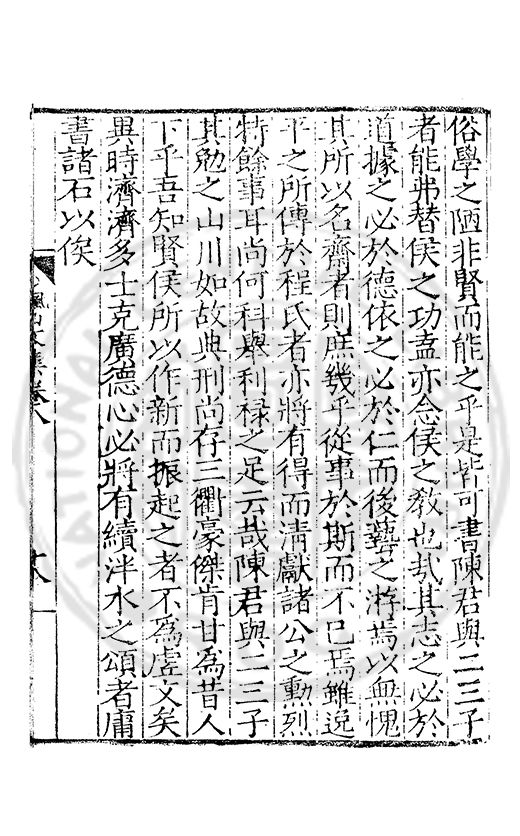 俗學之陋非賢而能之乎是皆可書陳君與二三子
者能弗替侯之功盍亦念侯之敎也㢤其志之必於
道據之必於德依之必於仁而後藝之游焉以無愧
其所以名齋者則庶幾乎從事於斯而不已焉雖逸
平之所傳於程氏者亦將有得而淸獻諸公之勳烈
特餘事耳尚何科舉利禄之足云哉陳君與二三子
其勉之山川如故典刑尚存三衢豪傑肯甘爲昔人
下乎吾知賢侯所以作新而振起之者不爲虗文矣
異時濟濟多士克廣德心必將有續泮水之頌者庸
書諸石以俟
文集卷八